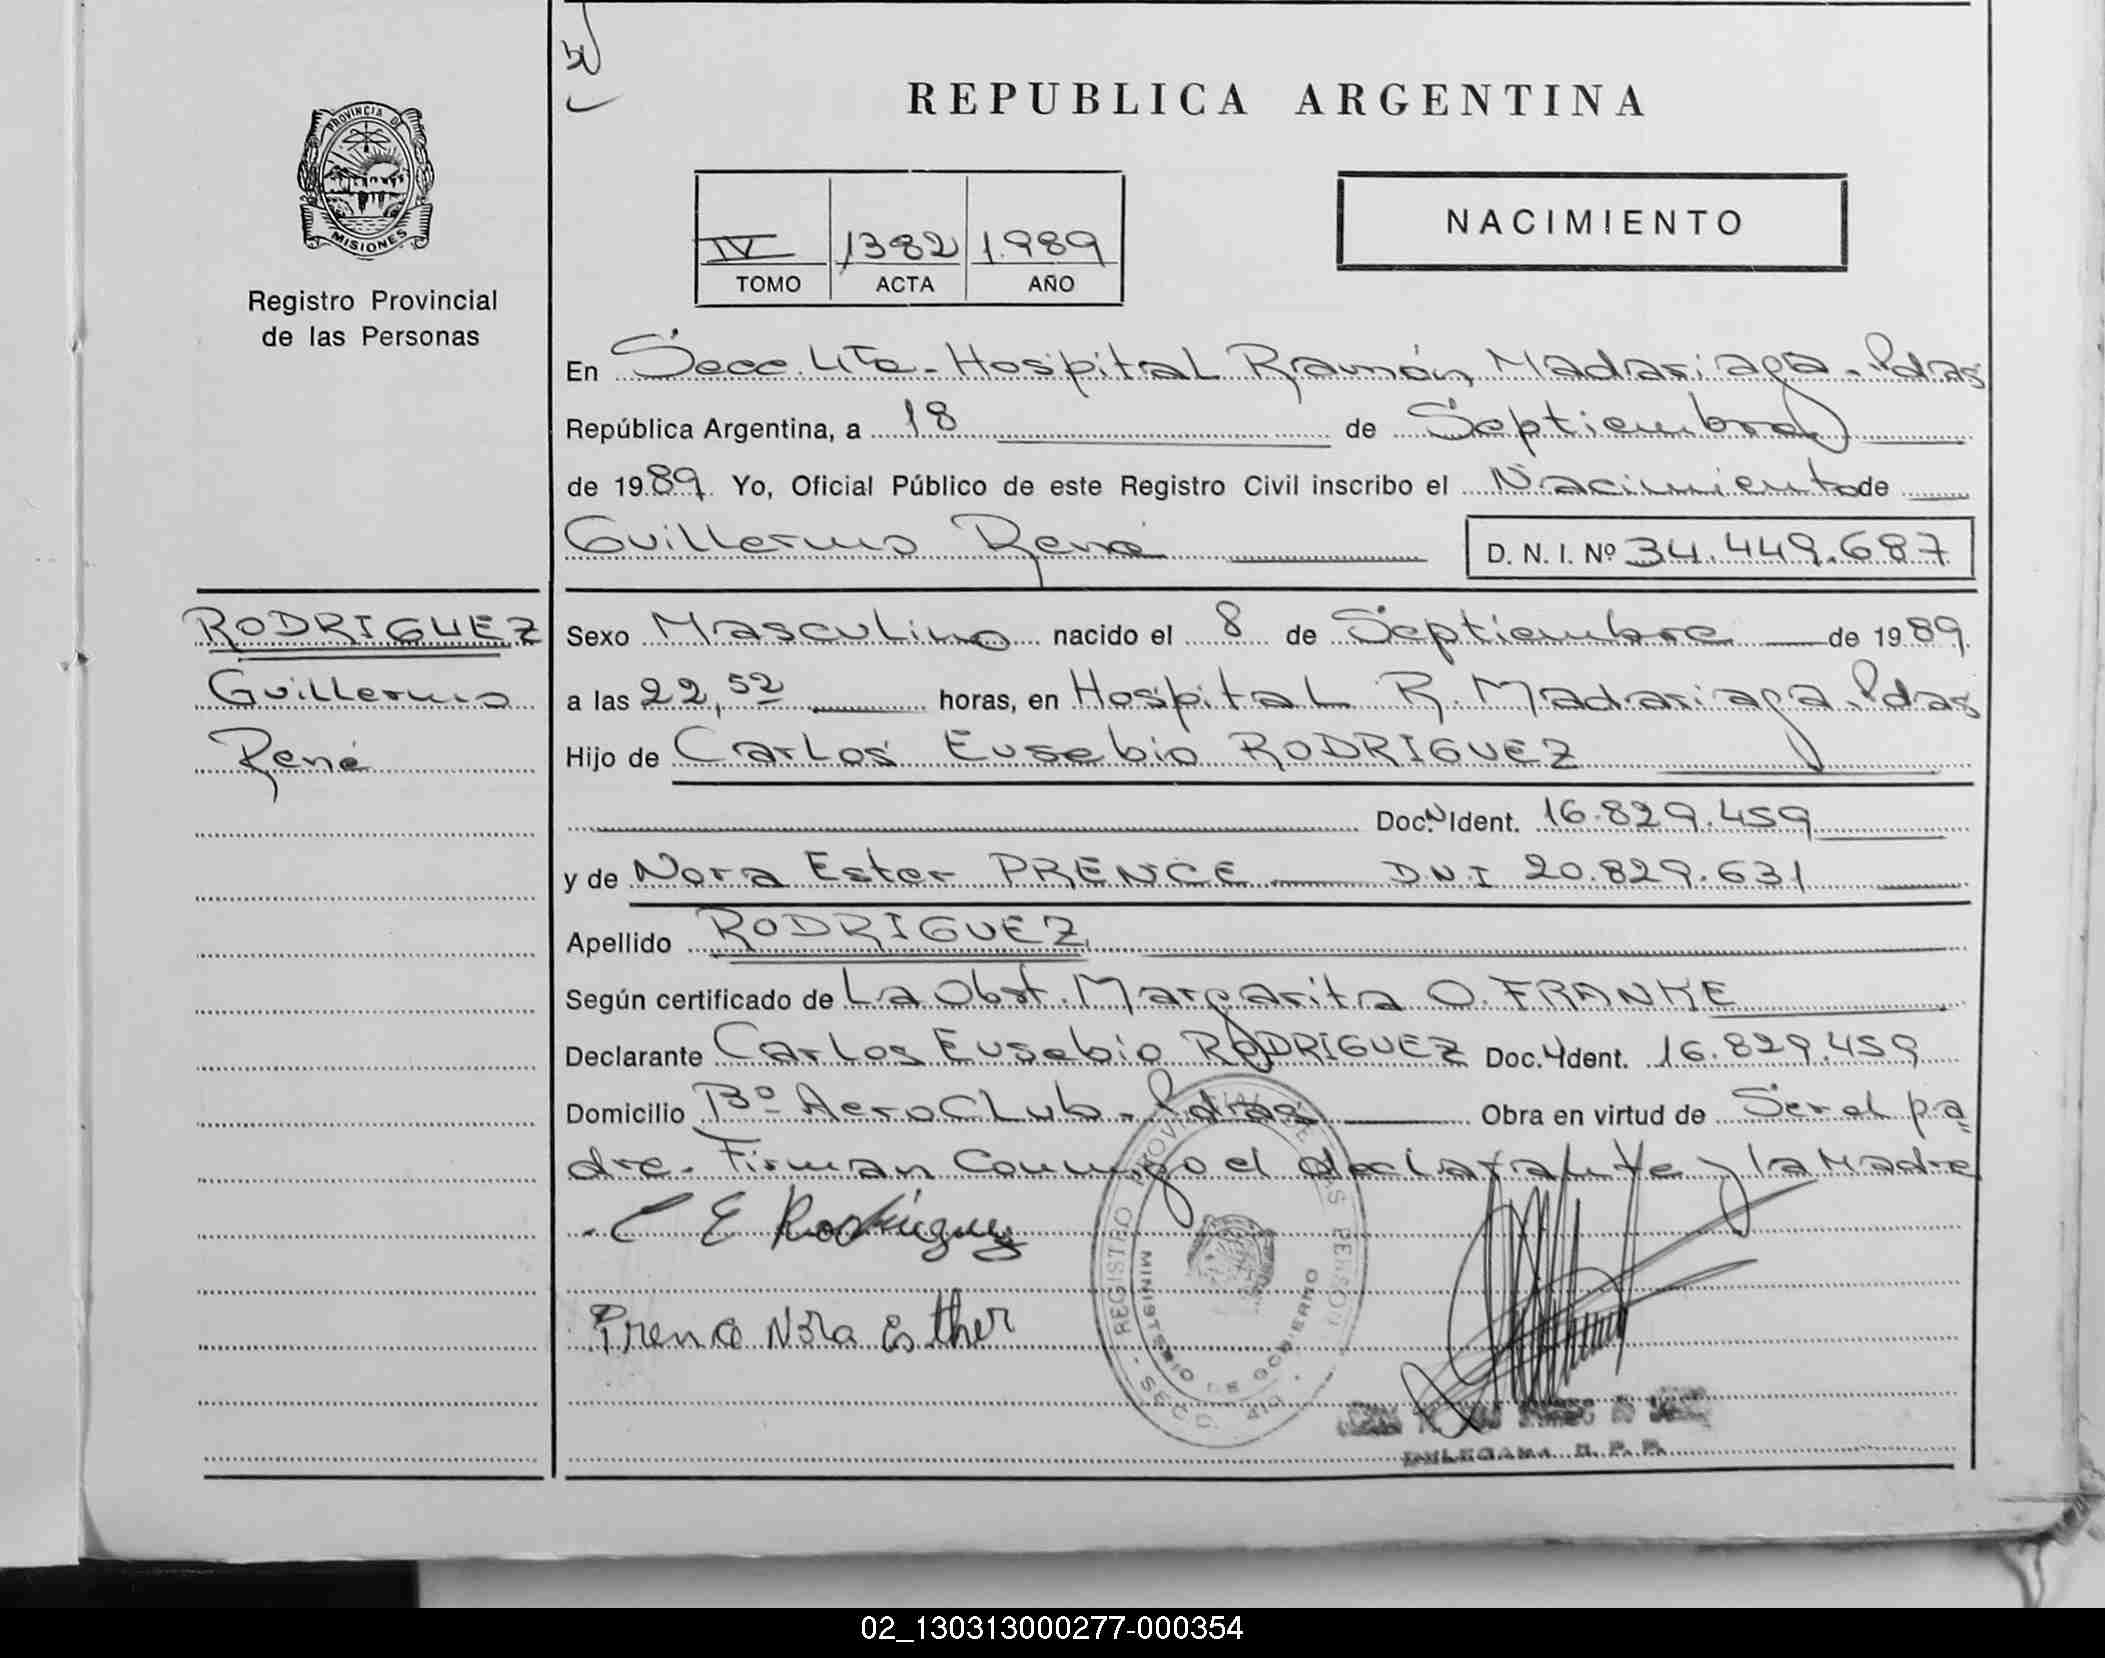 PROVINCIA DE
MISIONES
Registro Provincial
de las Personas
RODRIGUEZ
Guillermo
René
REPUBLICA ARGENTINA
IV 1382 1.989
TOMO ACTA AÑO
NACIMIENTO
En Secc. 4Ta - Hospital Ramón Madariaga - Pdas
República Argentina, a 18 de Septiembre
de 1989. Yo, Oficial Público de este Registro Civil inscribo el Nacimiento de
Guillermo René D. N. I. Nº 34.449.687
Sexo Masculino nacido el 8 de Septiembre de 1989.
a las 22,52 horas, en Hospital R. Madariaga. Pdas
Hijo de Carlos Eusebio RODRIGUEZ
Doc. N Ident. 16.829.459
y de Nora Ester PRENCE DNI 20.829.631
Apellido RODRIGUEZ
Según certificado de La Obst. Margarita O. FRANKE
Declarante Carlos Eusebio RODRIGUEZ Doc. Ident. 16.829.459
Domicilio Bº AeroClub - Pdas Obra en virtud de Ser el pa
dre - Firman Conmigo el declarante y la Madre
C E Rodriguez
Prence Nora Esther
REGISTRO PROVINCIAL DE LAS PERSONAS
MINISTERIO DE GOBIERNO
SECC. 4ta
R. P. P.
02_130313000277-000354